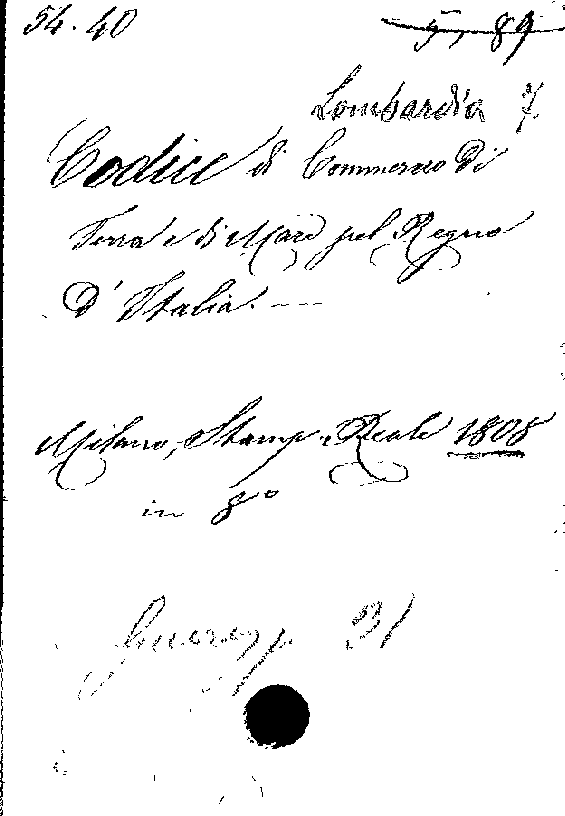 54.40
5, 89
Lombardia 7.
Codice di Commercio di
Terra e di Mare pel Regno
D'Italia.
Milano, Stamp. Reale 1808
in 8°
31